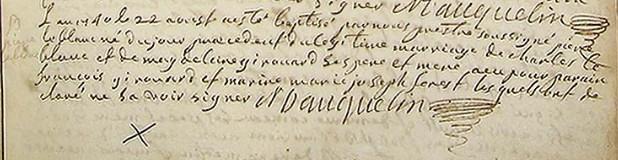 signer Mauquelin
Lan 1740 le 22 aoust a esté baptisé par nous prestre soussigné pierre
le blanc né du jour precedent du legitime marriage de charles le
blanc et de magdeleine girouard ses pere et mere a eu pour parain
francois girouard et marine marie joseph forest lesquels ont de
claré ne savoir signer Mauquelin